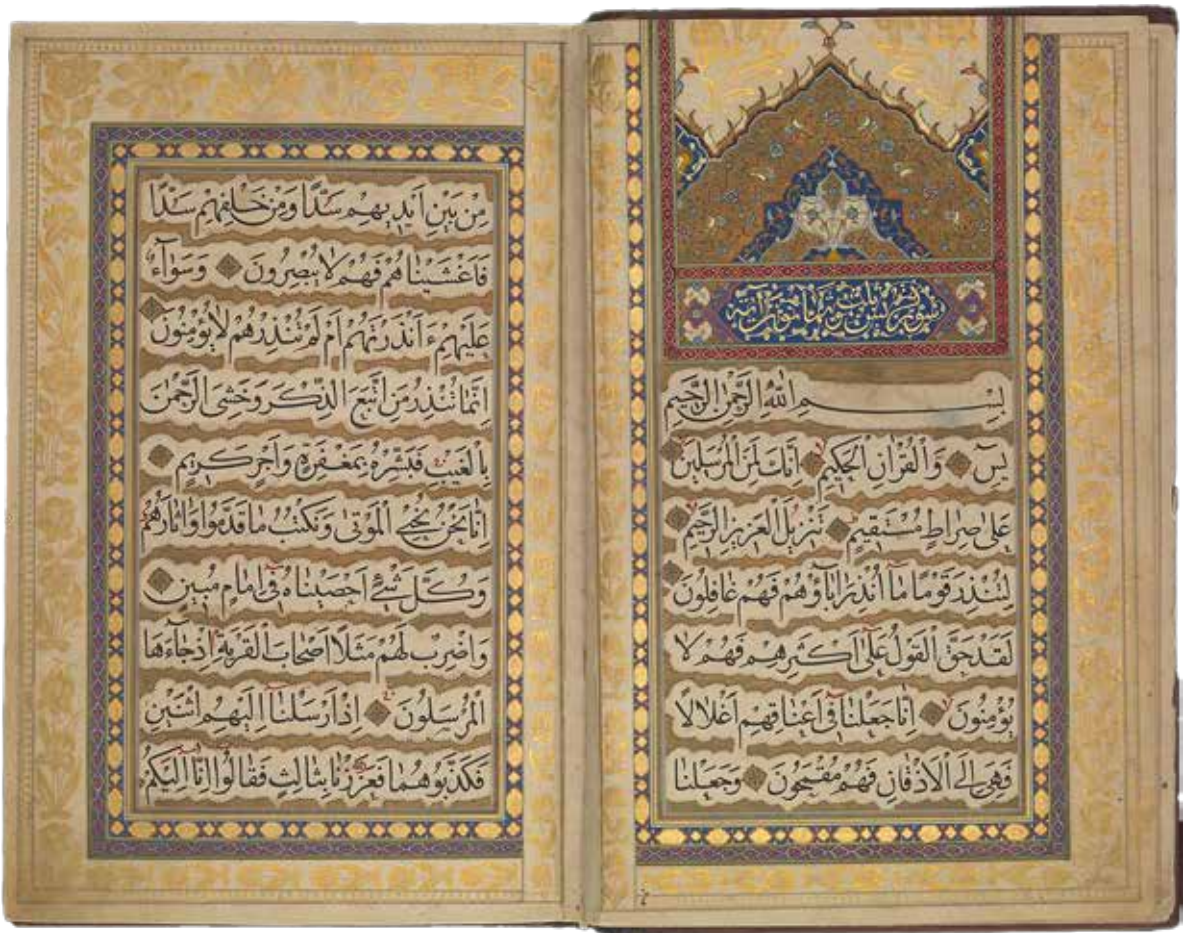 سورة يس ثلث وثمانون آية
بِسْمِ اللّٰهِ الرَّحْمٰنِ الرَّحِيمِ
يٰسٓ وَالْقُرْاٰنِ الْحَكِيمِ اِنَّكَ لَمِنَ الْمُرْسَلِينَ
عَلٰى صِرَاطٍ مُسْتَقِيمٍ تَنْزِيلَ الْعَزِيزِ الرَّحِيمِ
لِتُنْذِرَ قَوْمًا مَٓا اُنْذِرَ اٰبَٓاؤُهُمْ فَهُمْ غَافِلُونَ
لَقَدْ حَقَّ الْقَوْلُ عَلٰٓى اَكْثَرِهِمْ فَهُمْ لَا
يُؤْمِنُونَ اِنَّا جَعَلْنَا فِٓى اَعْنَاقِهِمْ اَغْلَالًا
فَهِىَ اِلَى الْاَذْقَانِ فَهُمْ مُقْمَحُونَ وَجَعَلْنَا
مِنْ بَيْنِ اَيْدِيهِمْ سَدًّا وَمِنْ خَلْفِهِمْ سَدًّا
فَاَغْشَيْنَاهُمْ فَهُمْ لَا يُبْصِرُونَ وَسَوَٓاءٌ
عَلَيْهِمْ ءَاَنْذَرْتَهُمْ اَمْ لَمْ تُنْذِرْهُمْ لَا يُؤْمِنُونَ
اِنَّمَا تُنْذِرُ مَنِ اتَّبَعَ الذِّكْرَ وَخَشِىَ الرَّحْمٰنَ
بِالْغَيْبِ فَبَشِّرْهُ بِمَغْفِرَةٍ وَاَجْرٍ كَرِيمٍ
اِنَّا نَحْنُ نُحْيِى الْمَوْتٰى وَنَكْتُبُ مَا قَدَّمُوا وَاٰثَارَهُمْ
وَكُلَّ شَىْءٍ اَحْصَيْنَاهُ فِٓى اِمَامٍ مُبِينٍ
وَاضْرِبْ لَهُمْ مَثَلًا اَصْحَابَ الْقَرْيَةِ اِذْ جَٓاءَهَا
الْمُرْسَلُونَ اِذْ اَرْسَلْنَٓا اِلَيْهِمُ اثْنَيْنِ
فَكَذَّبُوهُمَا فَعَزَّزْنَا بِثَالِثٍ فَقَالُٓوا اِنَّٓا اِلَيْكُمْ